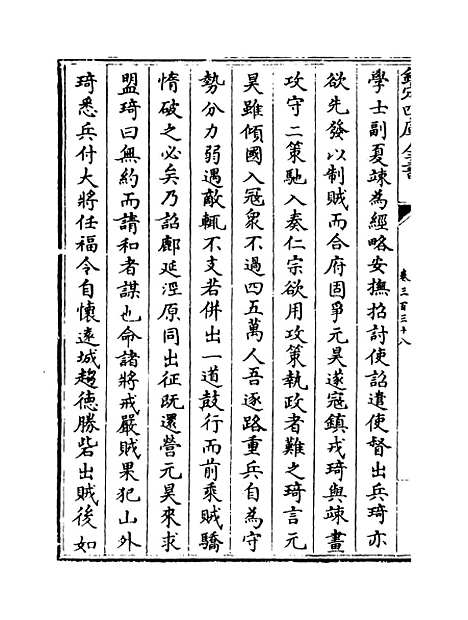 欽定四庫全書
卷三百三十八
學士副夏竦為經畧安撫招討使詔遣使督出兵琦亦
欲先發以制賊而合府固爭元昊遂寇鎮戎琦與竦畫
攻守二策馳入奏仁宗欲用攻策執政者難之琦言元
昊雖傾國入冦衆不過四五萬人吾逐路重兵自為守
勢分力弱遇敵輒不支若併出一道鼓行而前乘賊驕
惰破之必矣乃詔鄜延涇原同出征既還營元昊來求
盟琦曰無約而請和者謀也命諸將戒嚴賊果犯山外
琦悉兵付大將任福令自懷逺城趨德勝砦出賊後如